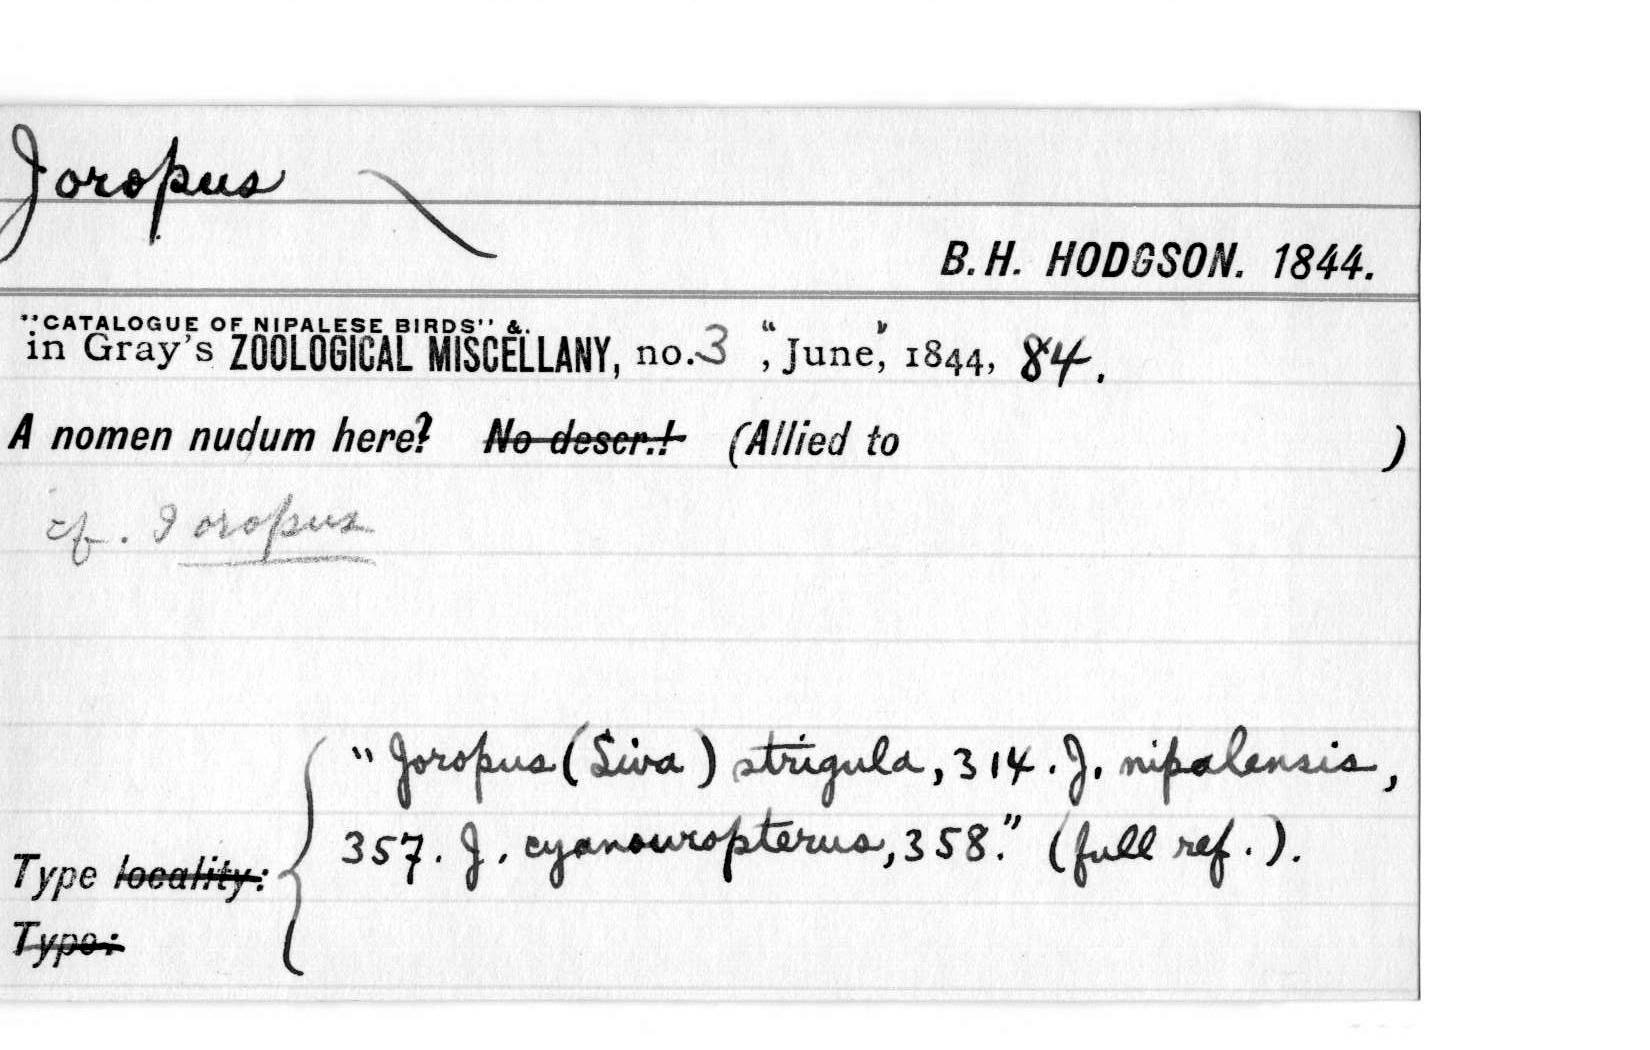 Joropus
B.H. HODGSON. 1844.
"CATALOGUE OF NIPALESE BIRDS" &.
in Gray's ZOOLOGICAL MISCELLANY, no. 3 , "June," 1844, 84.
A nomen nudum here? No descr.! (Allied to )
cf. Ioropus
"Joropus (Siva) strigula, 314. J. nipalensis,
357. J. cyanouropterus, 358." (full ref.).
Type locality:
Type: